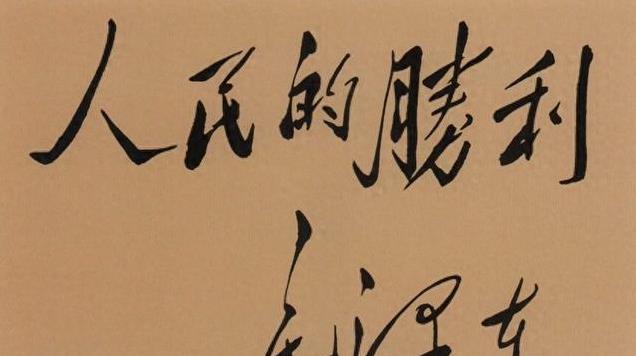 人民的勝利
毛澤东